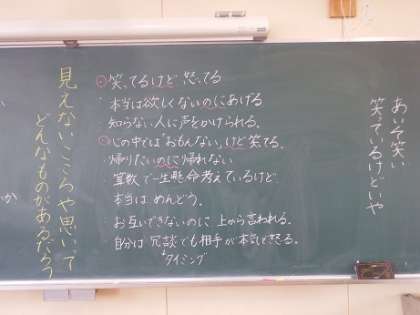 あいそ笑い
笑っているけどいや
笑ってるけど 怒ってる
本当は欲しくないのにあげる
知らない人に声をかけられる。
心の中では「おもんない」けど笑ってる。
帰りたいのに帰れない
算数で一生懸命考えているけど
本当は めんどう。
お互いできないのに 上から言われる。
自分は 冗談でも相手が本気で怒る。
タイミング
見えないこころや思いって
どんなものがあるだろう
か